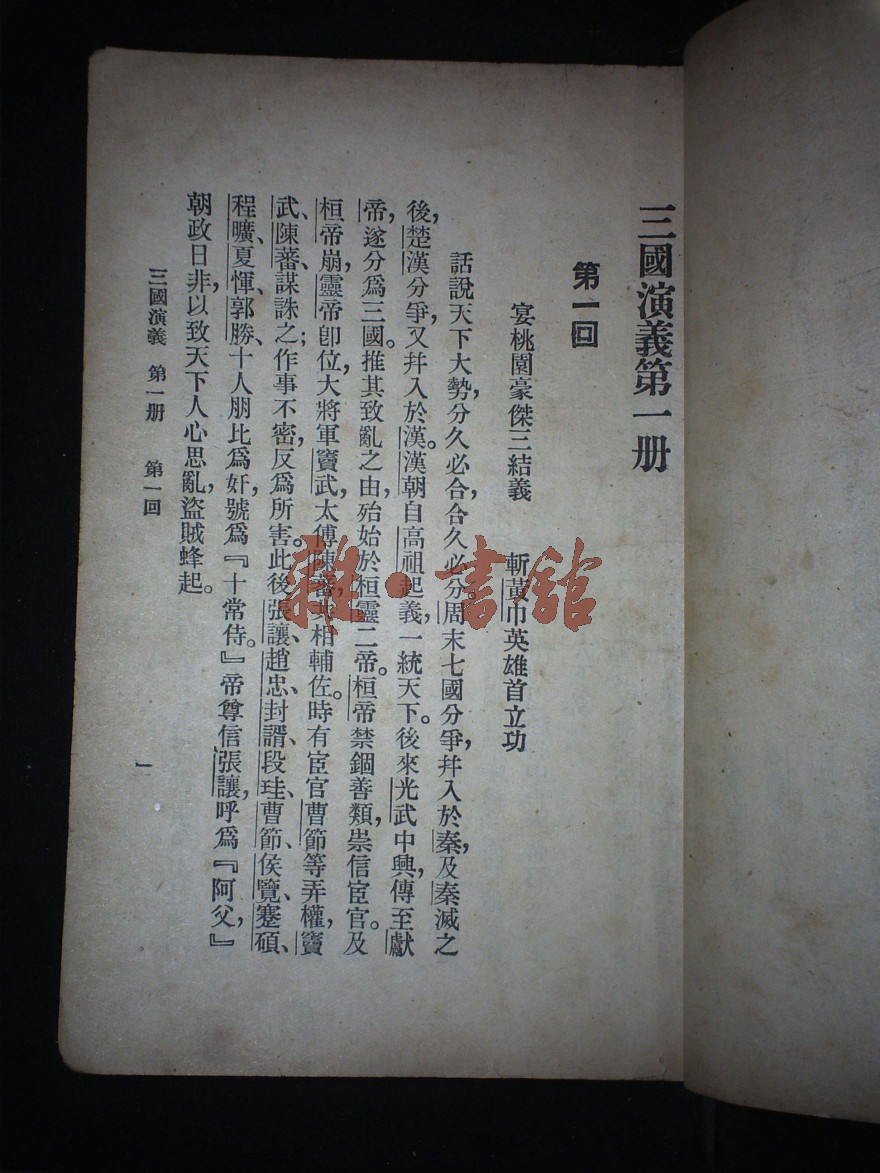 三國演義第一册
第一回
宴桃園豪傑三結義　斬黃巾英雄首立功
話說天下大勢，分久必合，合久必分。周末七國分爭，幷入於秦，及秦滅之
後，楚漢分爭，又幷入於漢。漢朝自高祖起義，一統天下。後來光武中興，傳至獻
帝，遂分爲三國。推其致亂之由，殆始於桓靈二帝。桓帝禁錮善類，崇信宦官。及
桓帝崩，靈帝卽位，大將軍竇武，太傅陳蕃，共相輔佐。時有宦官曹節等弄權，竇
武、陳蕃謀誅之；作事不密，反爲所害。此後張讓、趙忠、封諝、段珪、曹節、侯覽、蹇碩、
程曠、夏惲、郭勝、十人朋比爲奸，號爲『十常侍。』帝尊信張讓，呼爲『阿父，』
朝政日非，以致天下人心思亂，盜賊蜂起。
三國演義　第一册　第一回
一
雜·書館